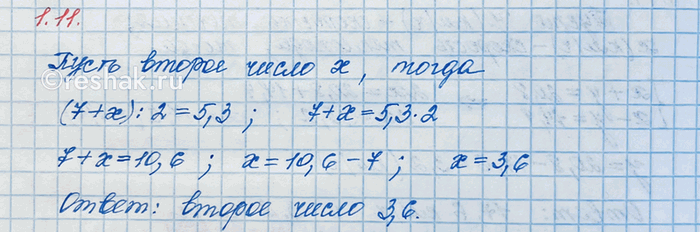 1.11.
Пусть второе число x, тогда
(7+x):2=5,3; 7+x=5,3·2
7+x=10,6; x=10,6-7; x=3,6
Ответ: второе число 3,6.
©reshak.ru